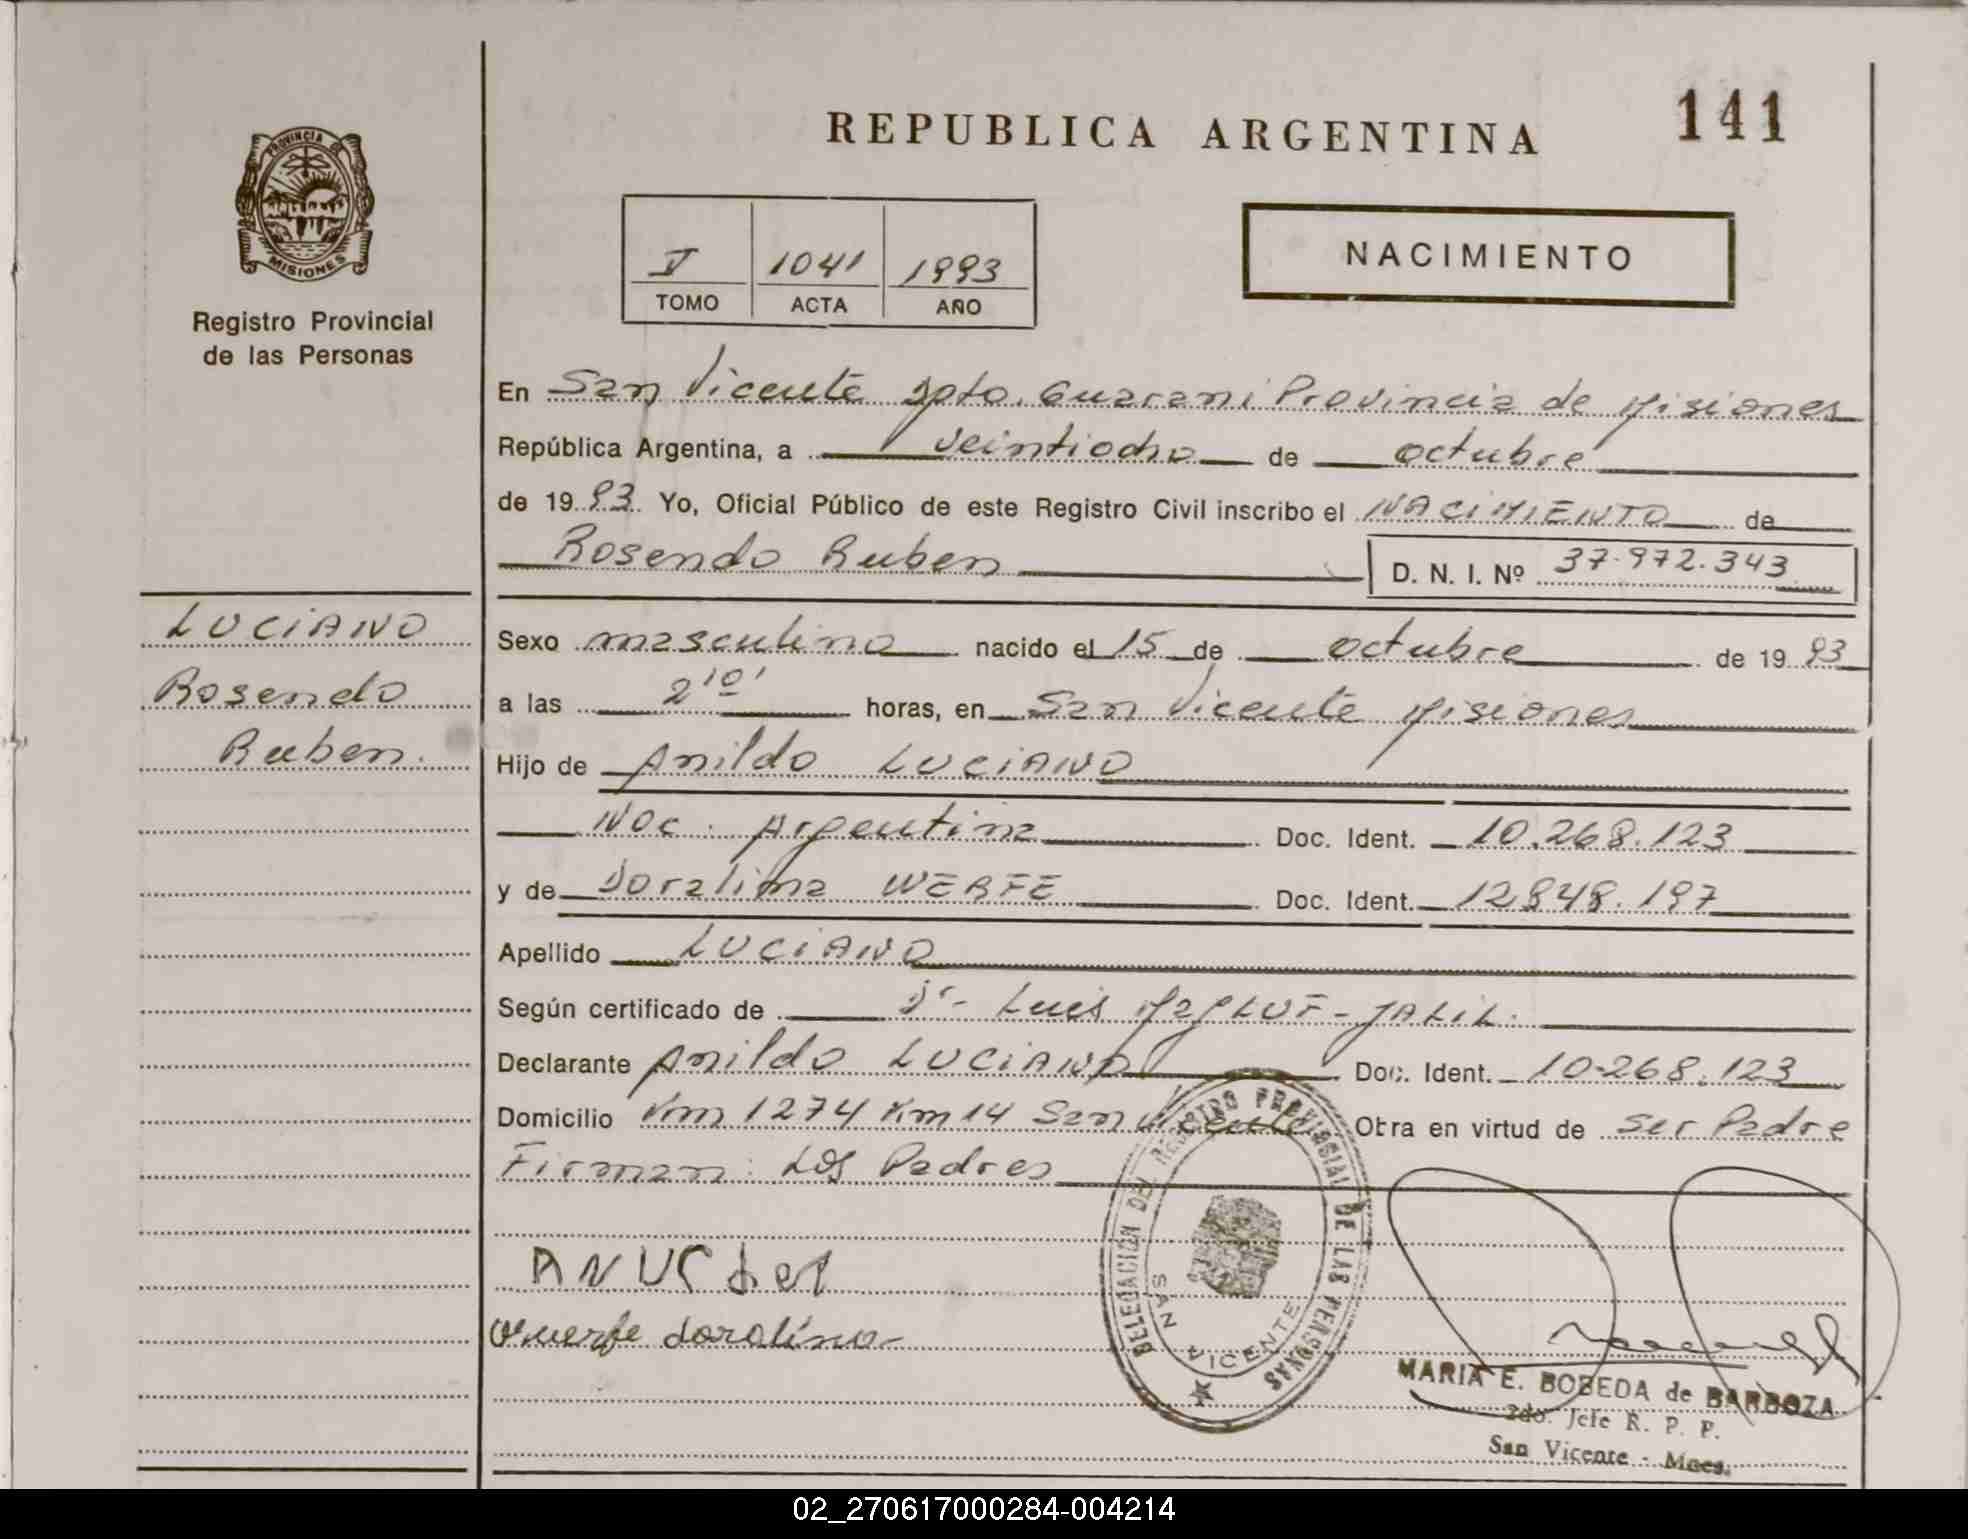 REPUBLICA ARGENTINA
141
PROVINCIA DE
MISIONES
Registro Provincial
de las Personas
V 1041 1993
TOMO ACTA AÑO
NACIMIENTO
En San Vicente Dpto. Guarani Provincia de Misiones
República Argentina, a veintiocho de octubre
de 19 93 Yo, Oficial Público de este Registro Civil inscribo el NACIMIENTO de
Rosendo Ruben D. N. I. Nº 37.972.343
LUCIANO
Rosendo
Ruben.
Sexo masculino nacido el 15 de octubre de 19 93
a las 2'10' horas, en San Vicente Misiones
Hijo de Anildo LUCIANO
Nac. Argentina Doc. Ident. 10.268.123
y de Doralina WERFE Doc. Ident. 12848.197
Apellido LUCIANO
Según certificado de Dr- Luis - JALIL.
Declarante Anildo LUCIANO Doc. Ident. 10-268.123
Domicilio Km 1274 Km 14 San Vicente Obra en virtud de ser Padre
Firman: Los Padres
doralina
DELEGACION DEL REGISTRO PROVINCIAL DE LAS PERSONAS
SAN VICENTE
MARIA E. BOBEDA de BARBOZA
2do. Jefe R. P. P.
San Vicente - Mnes.
02_270617000284-004214